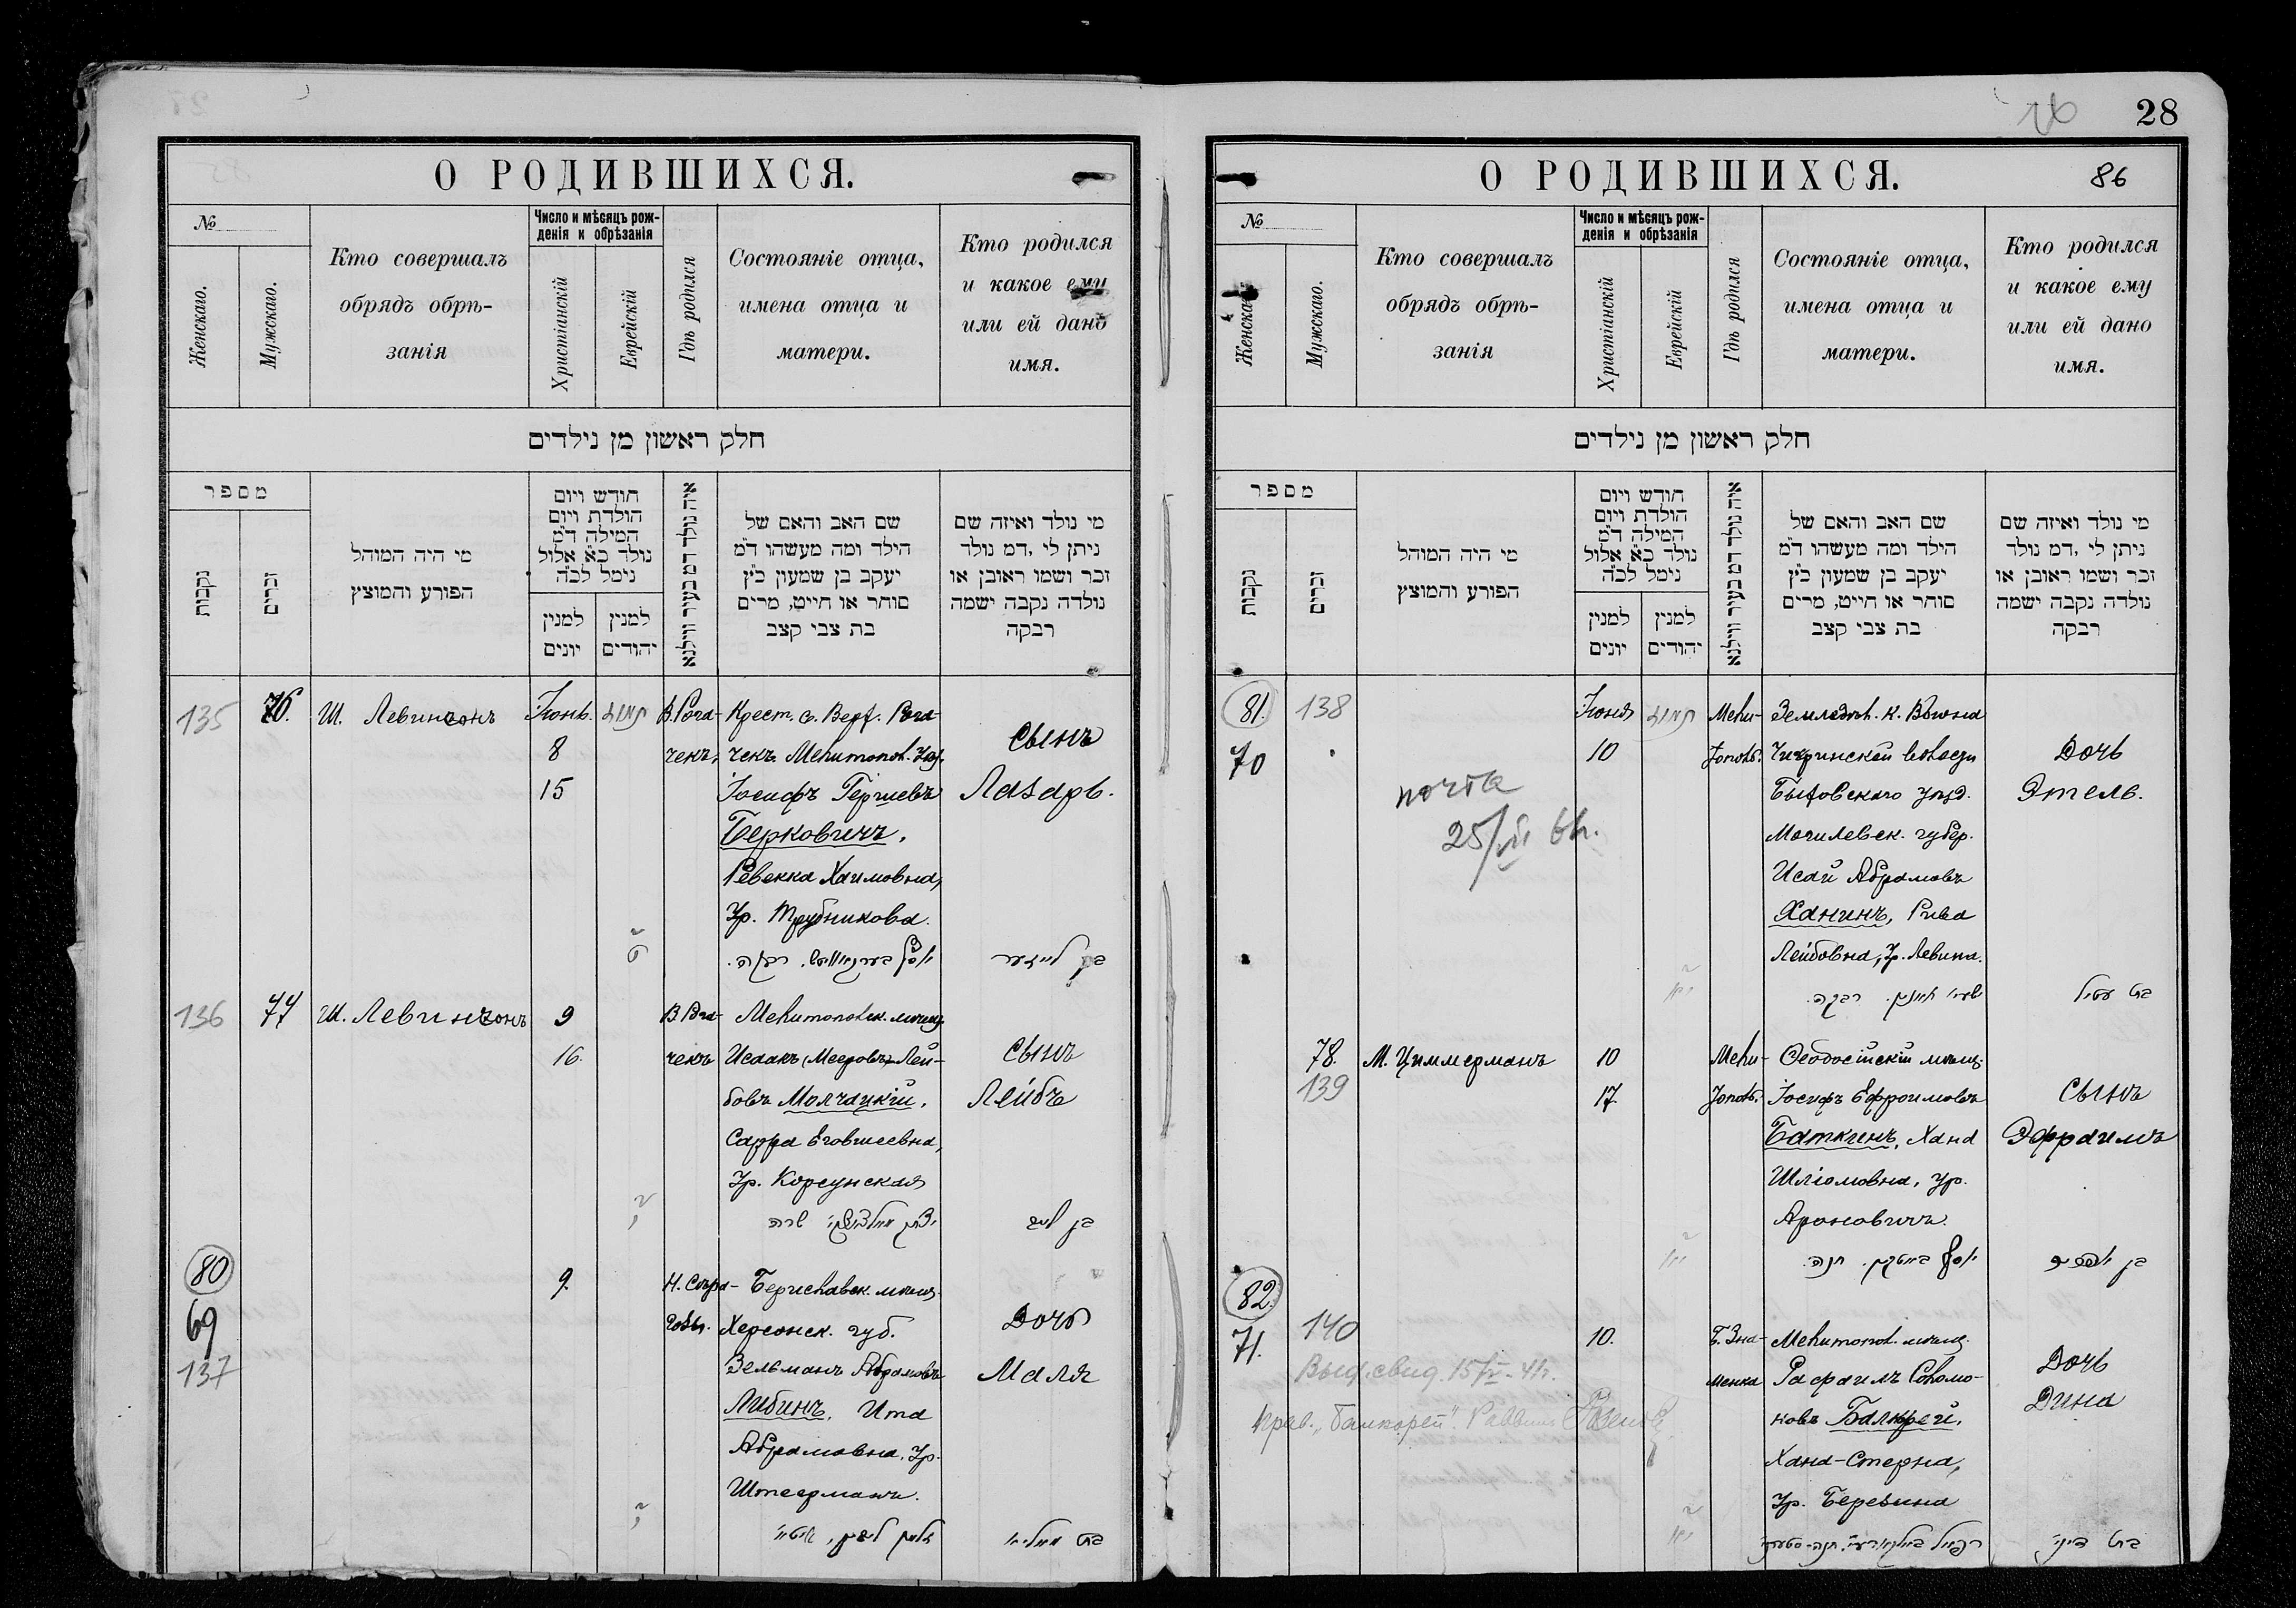 О РОДИВШИХСЯ.
№
Женскаго.
Мужскаго.
Кто совершалъ
обрядъ обрѣ-
занія
Число и мѣсяцъ рож-
денія и обрѣзанія
Христіанскій
Еврейскій
Гдѣ родился
Состояніе отца,
имена отца и
матери.
Кто родился
и какое ему
или ей дано
имя.
חלק ראשון מן נילדים
מספר
נקבות
זכרים
מי היה המוהל
הפורע והמוצץ
חודש ויום
הולדת ויום
המילה ד״מ
נולד כ״א אלול
נימל לכ״ה
למנין
יונים
למנין
יהודים
איה נולד דמ בעיר ווילנא
שם האב והאם של
הילד ומה מעשהו ד״מ
יעקב בן שמעון כ״ץ
סוחר או חייט, מרים
בת צבי קצב
מי נולד ואיזה שם
ניתן לי, דמ נולד
זכר ושמו ראובן או
נולדה נקבה ישמה
רבקה
135
76.
Ш. Левинсонъ
Іюнь.
8
15
תמוז
В. Рога-
чекъ.
Крест. с. Верх. Рога-
чекъ. Мелитопол. уѣз.
Іосифъ Гершевъ
Берковичъ,
Ревекка Хаимовна,
Ур. Трубникова.
Сынъ
Лазарь.
136
77
Ш. Левинсонъ
9
16.
В. Рога-
чекъ
Мелитопольск. мѣщ.
Исаакъ (Мееровъ) Лей-
бовъ Молчацкій,
Сарра Еговшеевна,
Ур. Корсунская
שרה
Сынъ
Лейбъ
80
69
137
9.
Н. Сѣро-
гозы.
Бериславск. мѣщ.
Херсонск. губ.
Зельманъ Абрамовъ
Либинъ, Ита
Абрамовна, Ур.
Штеерманъ.
Дочь
Маля
28
О РОДИВШИХСЯ.
86
№
Женскаго.
Мужскаго.
Кто совершалъ
обрядъ обрѣ-
занія
Число и мѣсяцъ рож-
денія и обрѣзанія
Христіанскій
Еврейскій
Гдѣ родился
Состояніе отца,
имена отца и
матери.
Кто родился
и какое ему
или ей дано
имя.
חלק ראשון מן נילדים
מספר
נקבות
זכרים
מי היה המוהל
הפורע והמוצץ
חודש ויום
הולדת ויום
המילה ד״מ
נולד כ״א אלול
נימל לכ״ה
למנין
יונים
למנין
יהודים
איה נולד דמ בעיר ווילנא
שם האב והאם של
הילד ומה מעשהו ד״מ
יעקב בן שמעון כ״ץ
סוחר או חייט, מרים
בת צבי קצב
מי נולד ואיזה שם
ניתן לי, דמ נולד
זכר ושמו ראובן או
נולדה נקבה ישמה
רבקה
81.
138
70
почта
Іюня
10
תמוז
Мели-
тополь.
Земледѣл. к.
Чигринской волости
Быховскаго уѣзд.
Могилевск. губер.
Исай Абрамовъ
Ханинъ, Рива
Лейбовна, Ур. Левина.
רבקה.
Дочь
Этель.
78.
139
М. Циммерманъ
10
17.
Мели-
тополь.
Ѳеодосійскій мѣщ.
Іосифъ Ефроимовъ
Баткинъ, Хана
Шліомовна, Ур.
Ароновичъ.
יוסף חנה.
Сынъ
Эфраимъ
82.
140
71.
Выд. свид.
10.
Б. Зна-
менка
Мелитопол. мѣщ.
Рафаилъ Соломо-
новъ Балкарей,
Хана-Стерна,
Ур. Беревина
Дочь
Дина